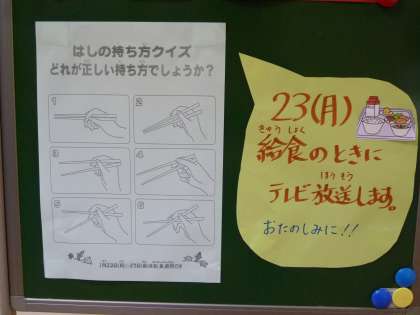 はしの持ち方クイズ
どれが正しい持ち方でしょうか？
1
2
3
4
5
6
23(月)
きゅうしょく
給食のときに
ほうそう
テレビ放送します。
おたのしみに!!